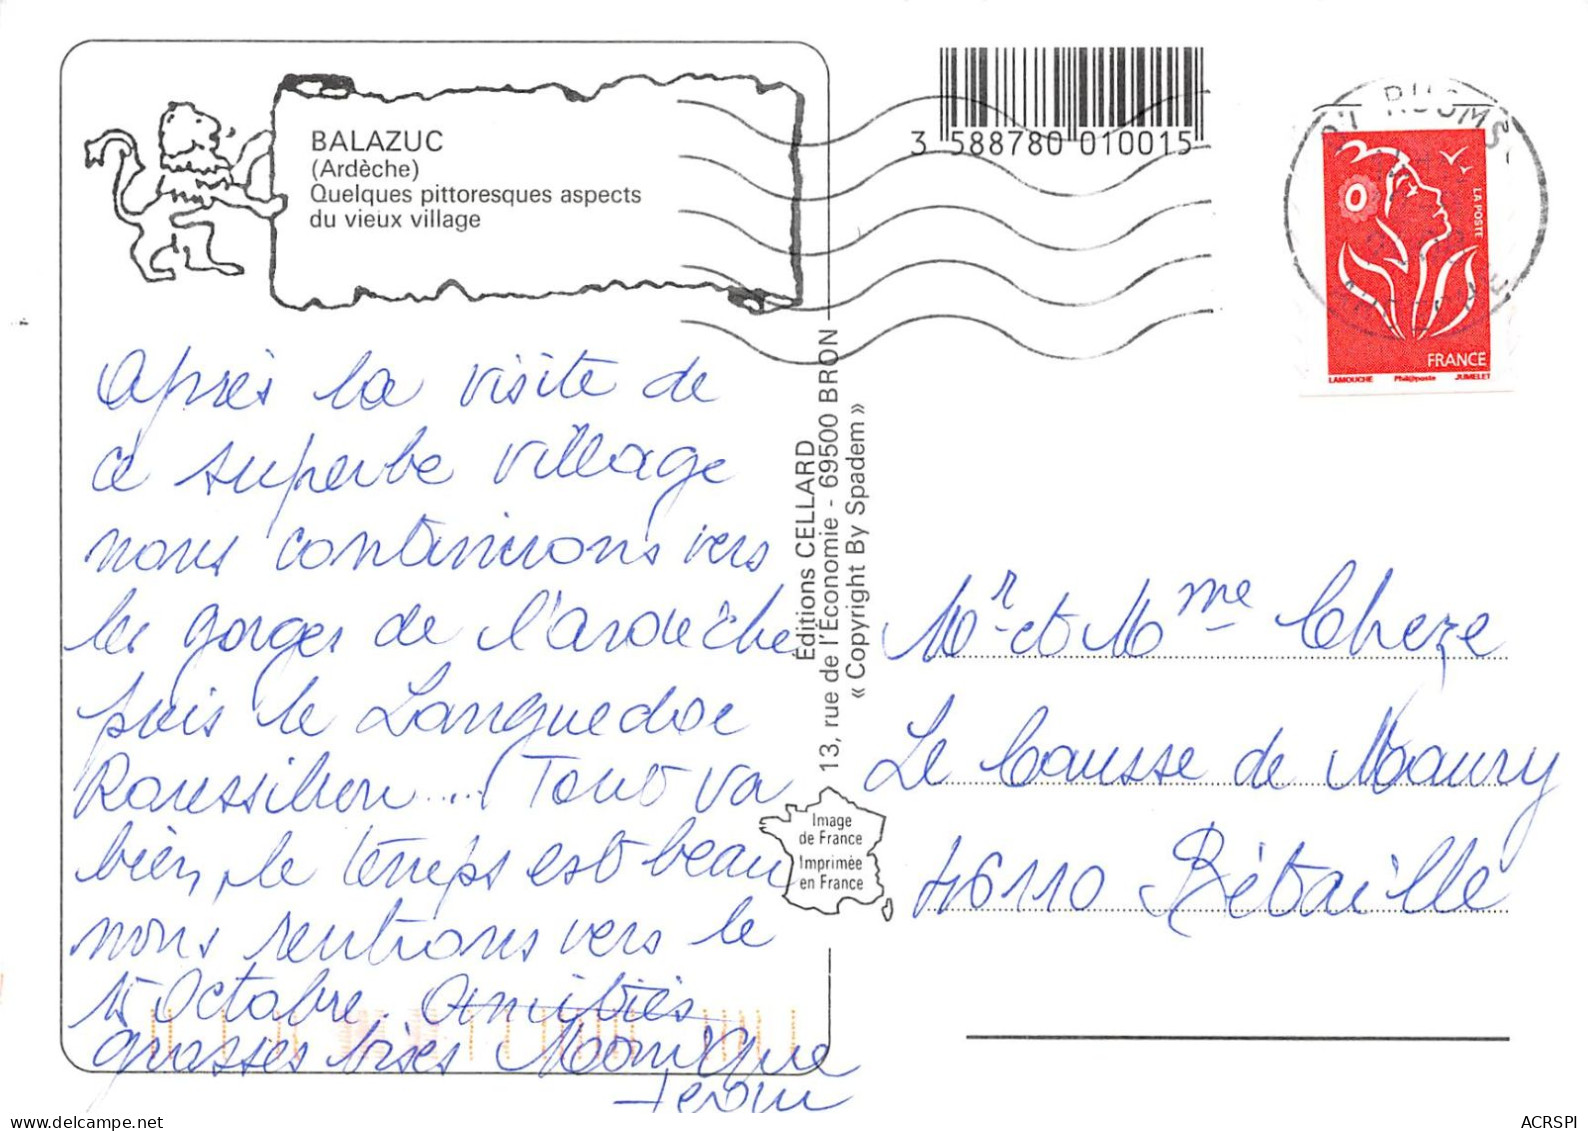 BALAZUC
(Ardèche)
Quelques pittoresques aspects
du vieux village
3 588780 010015
RUOMS
LA POSTE
FRANCE
LAMOUCHE Phil@poste JUMELET
Après la visite de
ce superbe village
nous continuons vers
les gorges de l'ardèche
puis le Languedoc
Roussillon.... Tout va
bien, le temps est beau
nous rentrons vers le
15 Octobre. Amitiés
grosses bises Monique
Éditions CELLARD
13, rue de l'Économie - 69500 BRON
« Copyright By Spadem »
Image
de France
Imprimée
en France
Mr et Mme Cheze
Le Causse de Maury
46110 Bétaille
ACRSPI